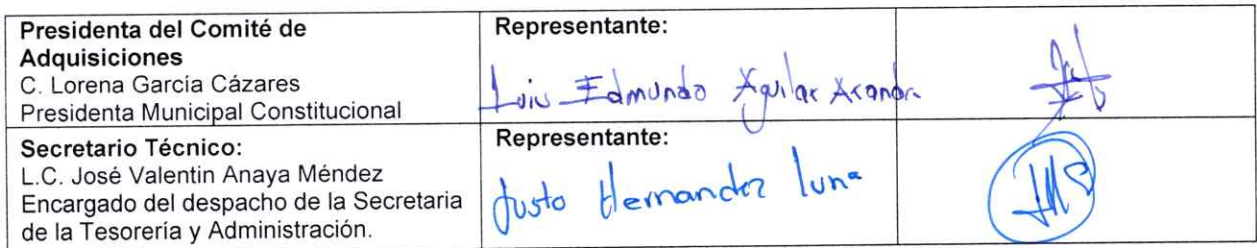 Presidenta del Comité de
Adquisiciones
C. Lorena García Cázares
Presidenta Municipal Constitucional
Representante:
Luis Edmundo Aguilar
Secretario Técnico:
L.C. José Valentin Anaya Méndez
Encargado del despacho de la Secretaria
de la Tesorería y Administración.
Representante:
Justo Hernandez luna